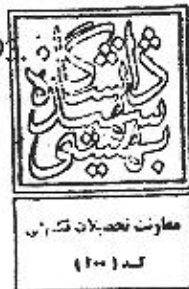 دانشگاه
شهید
بهشتی
معاونت تحصیلات تکمیلی
کد (۱۰۰)